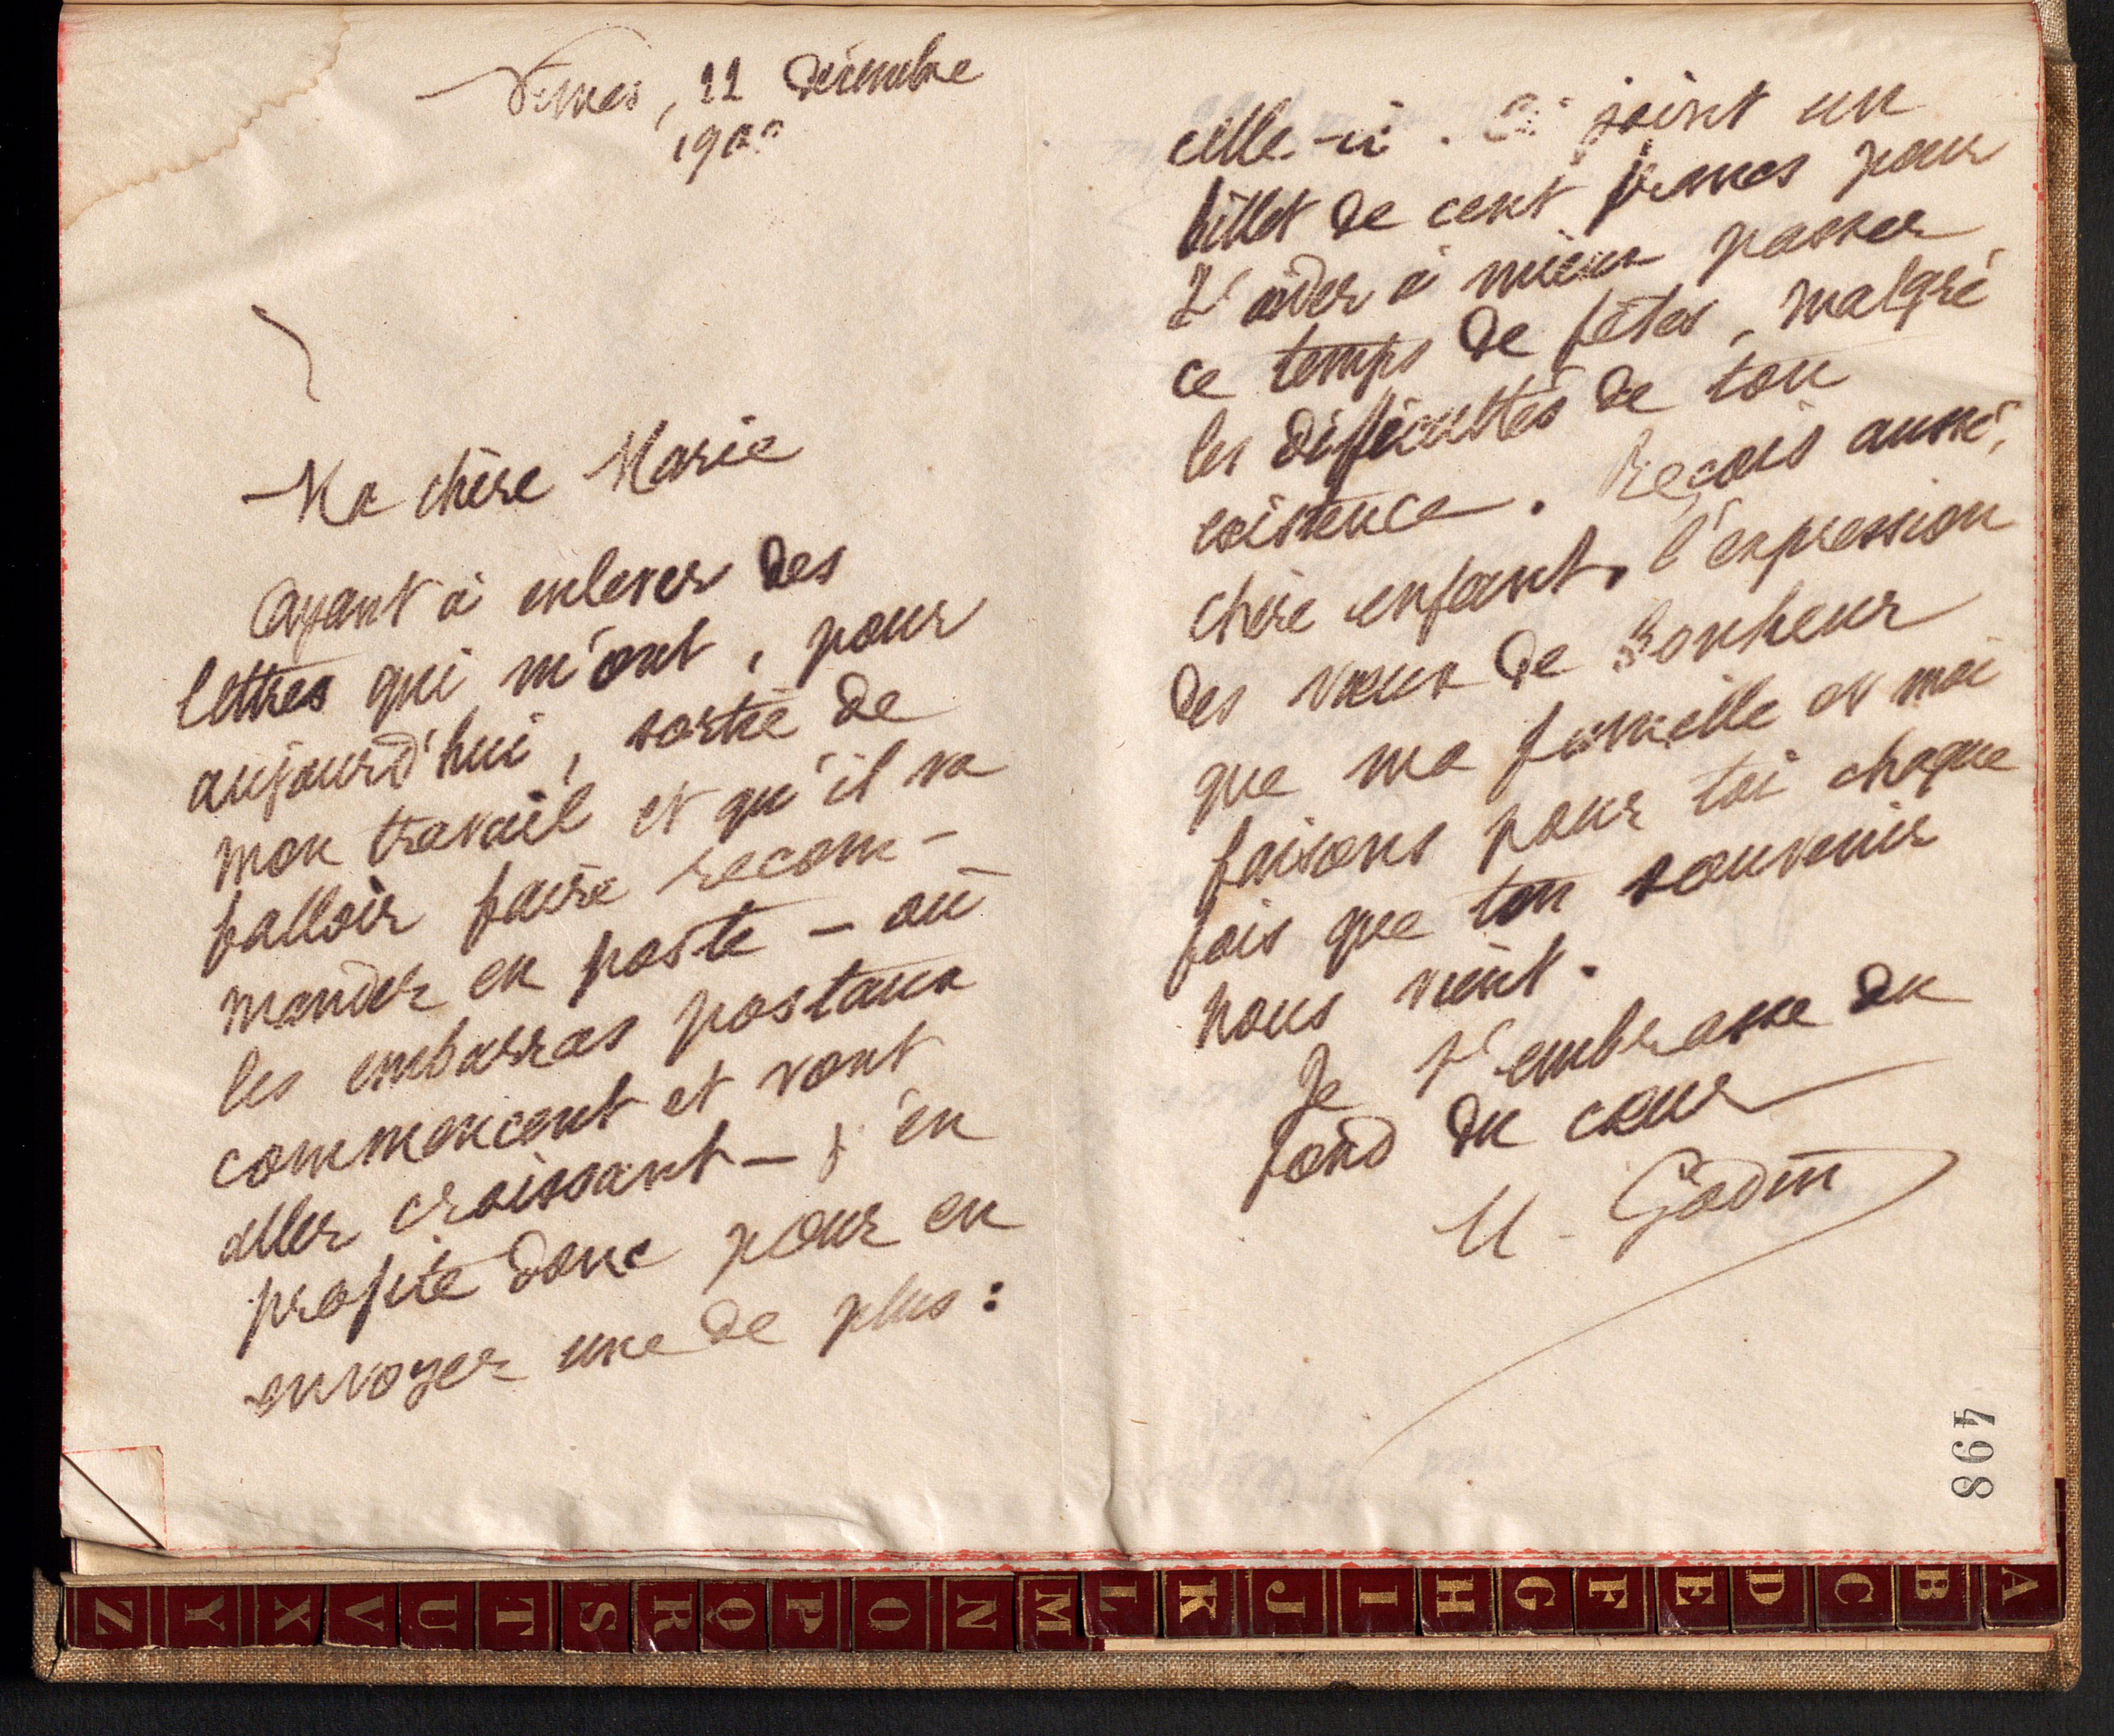 Nimes, 22 décembre
190
Ma chère Marie
Ayant à enlever des
lettres qui m'ont, pour
aujourd'hui, sortie de
mon travail et qu'il va
falloir faire recom-
mander en poste - où
les embarras postaux
commencent et vont
aller croissant - j'en
profite donc pour en
envoyer une de plus :
celle-ci. Ci joint un
billet de cent francs pour
t'aider à mieux passer
ce temps de fêtes, malgré
les difficultés de ton
existence. Reçois aussi,
chère enfant, l'expression
des vœux de bonheur
que ma famille et moi
faisons pour toi chaque
fois que ton souvenir
nous vient.
Je t'embrasse du
fond du cœur
M. Godin
498
Z Y X V U T S R Q P O N M L K J I H G F E D C B A